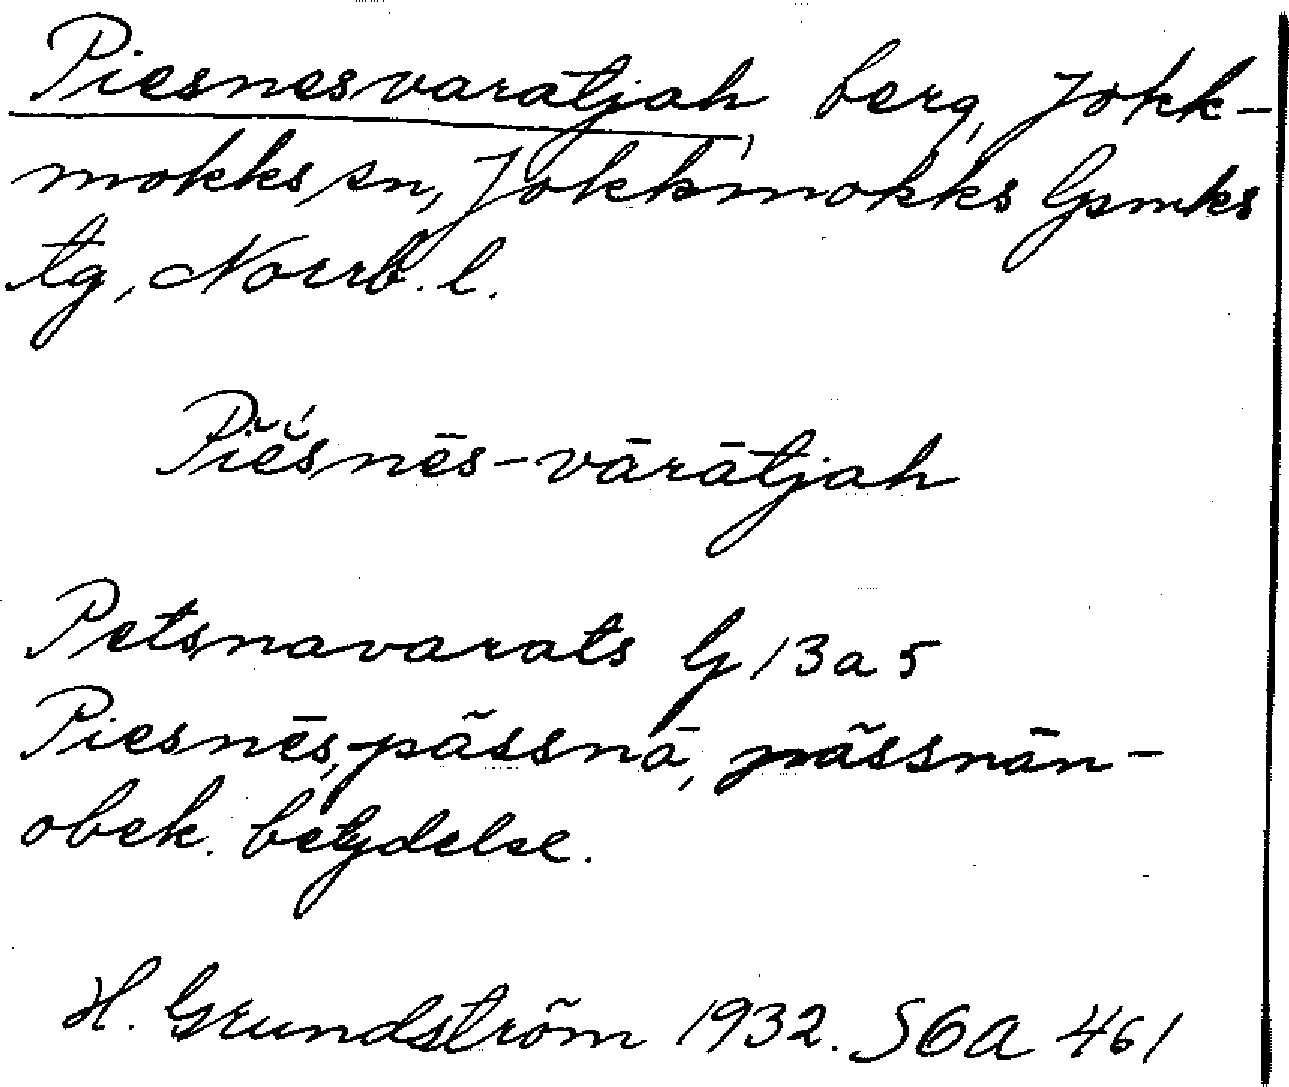 Piesnesvaratjah, berg, Jokk-
mokks sn, Jokkmokks lpmks
tg, Norrb. l.
Piĕ́snēs-vārātjah
Petsnavarats G 13 a 5
Piesnēs, pāssnā, pāssnān-
obek. betydelse.
H. Grundström 1932. SOA 461